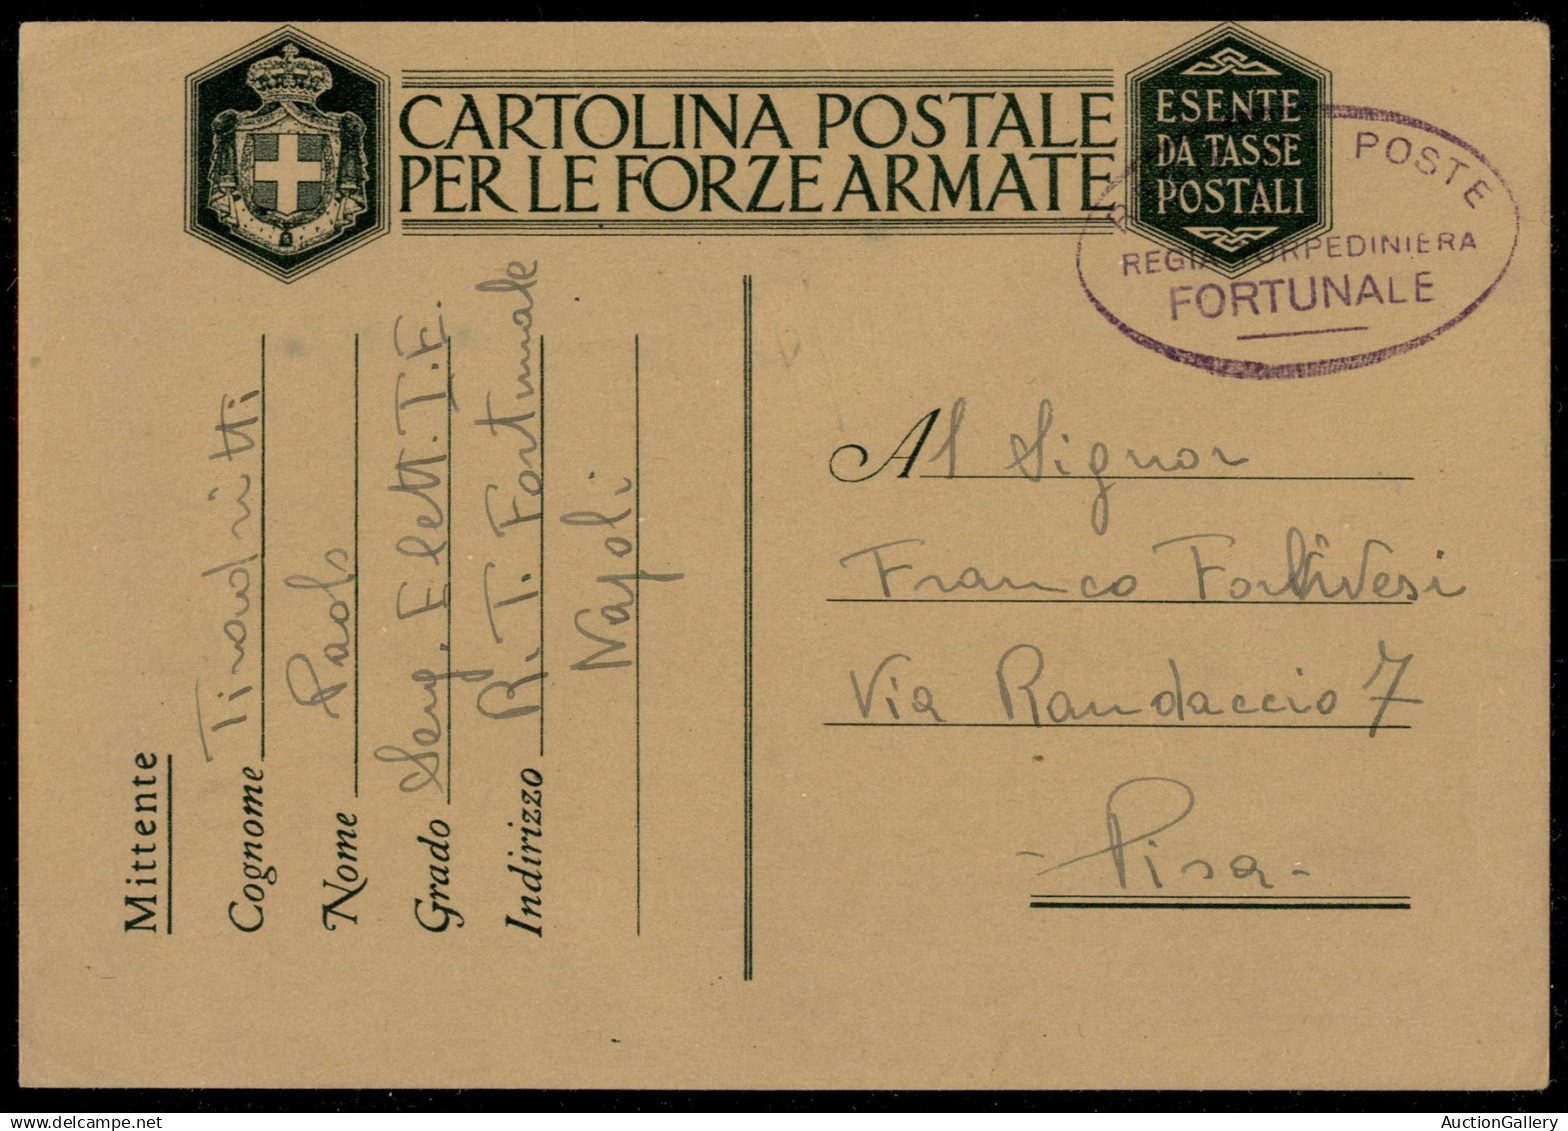 CARTOLINA POSTALE
PER LE FORZE ARMATE
ESENTE
DA TASSE
POSTALI
POSTE
REGIA TORPEDINIERA
FORTUNALE
Mittente
Cognome
Nome Paolo
Grado Serg. Elett. T.E.
Indirizzo R. T. Fortunale
Napoli
Al Signor
Franco
Via Randaccio 7
- Pisa -
AuctionGallery